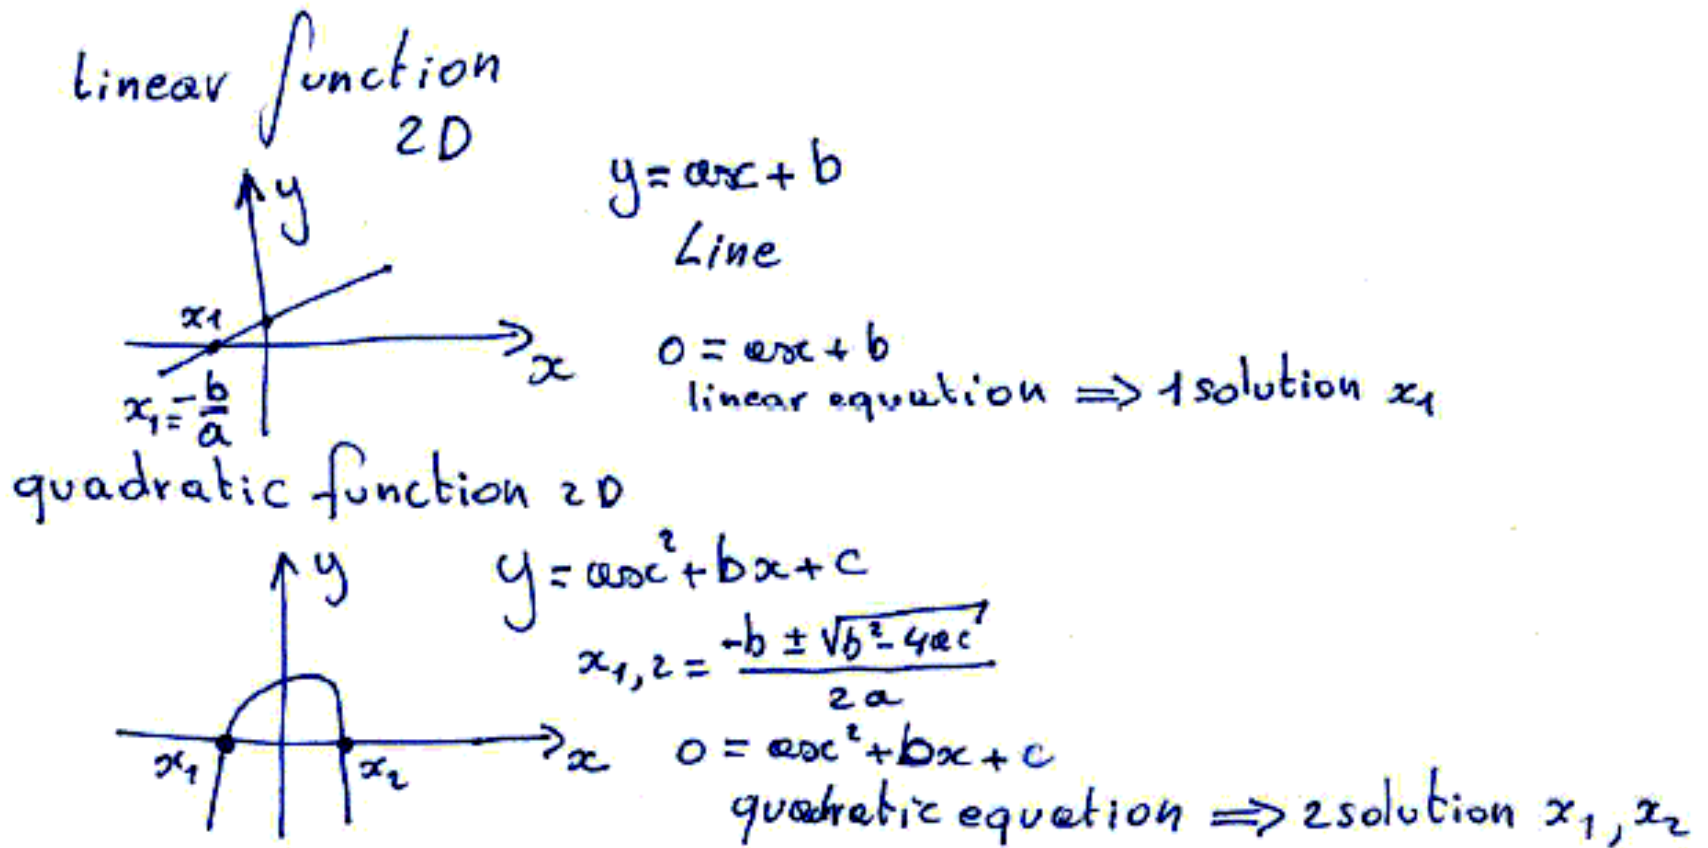 linear function
2D
y
y = ax + b
Line
x1
x
0 = ax + b
linear equation ⇒ 1 solution x₁
x₁ = -b/a
quadratic function 2D
y
y = ax² + bx + c
x₁,₂ = (-b ± √(b² - 4ac)) / 2a
x₁
x₂
x
0 = ax² + bx + c
quadratic equation ⇒ 2 solution x₁, x₂